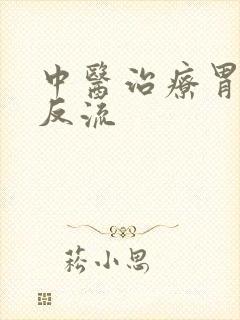 中醫治療胃
反流
菘小思